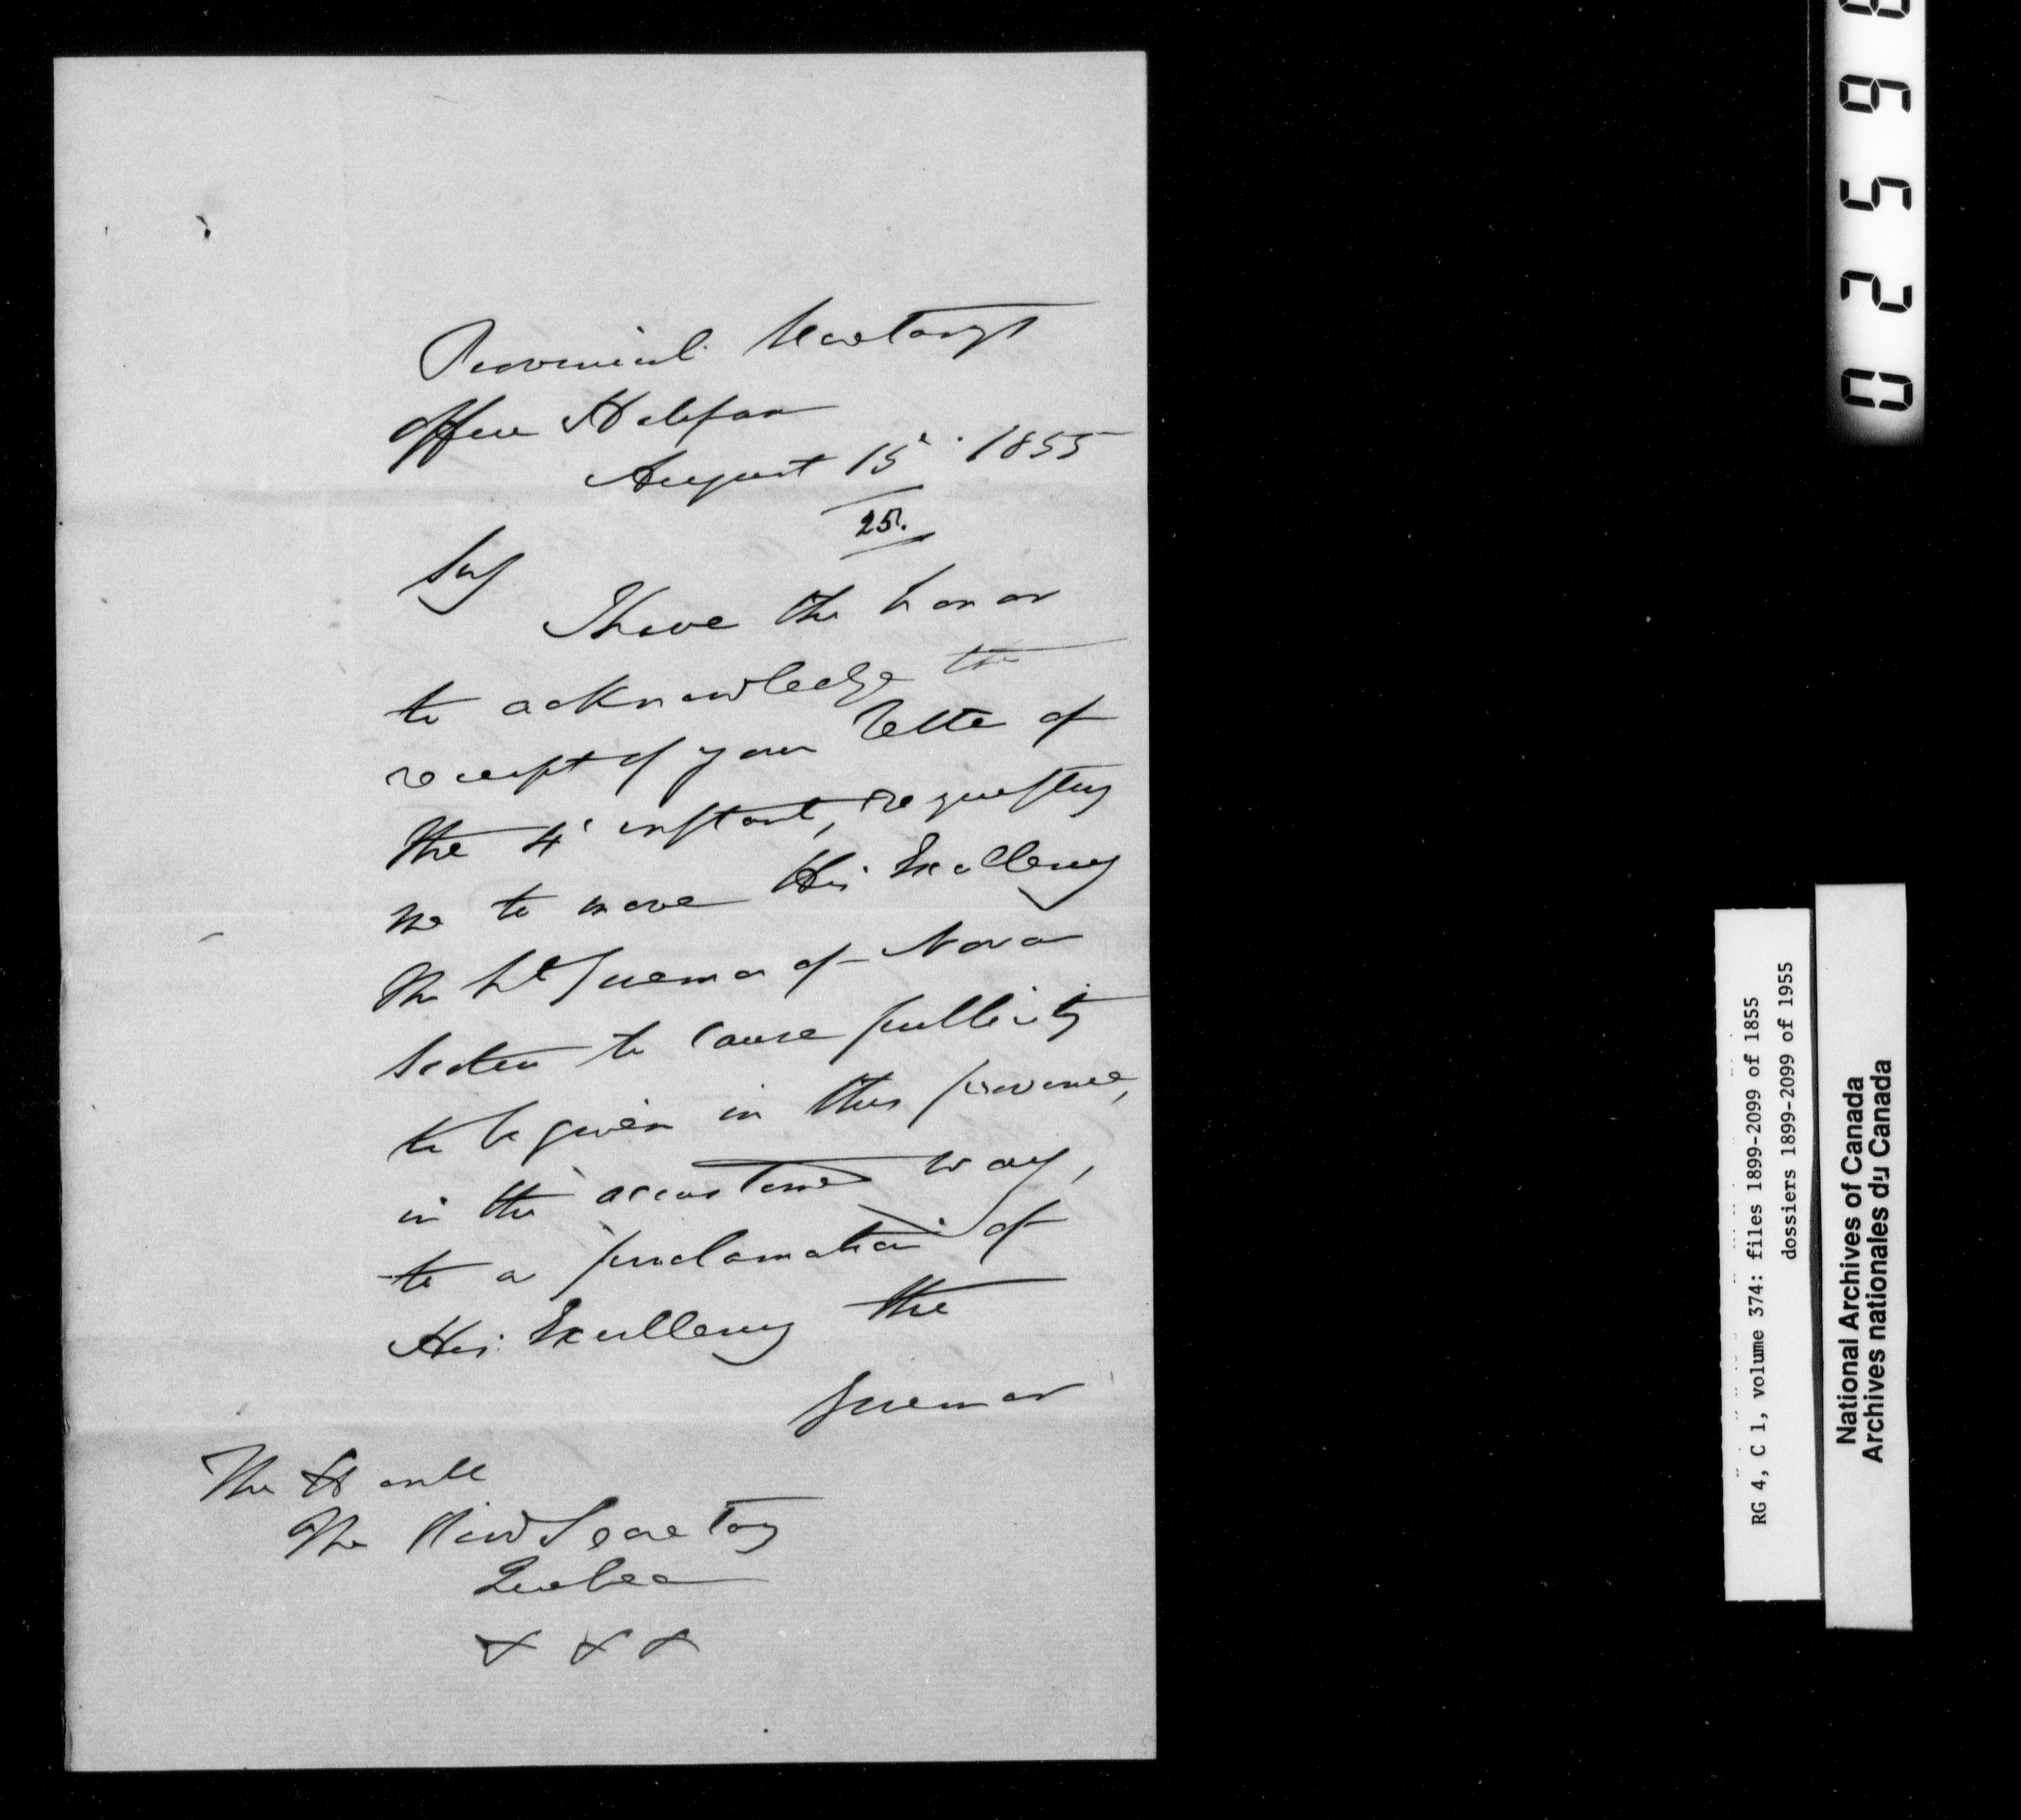 Provincial Secretary's
Office Halifax
August 15' 1855
25.
Sir,
I have the honor
to acknowledge the
receipt of your letter of
the 4' instant, requesting
me to move His Excellency
the Lt Governor of Nova
Scotia to cause publicity
to be given in this province,
in the accustomed way,
to a proclamation of
His Excellency the
Governor
The Honble
The Prov Secretary
Quebec
x x x
02598
RG 4, C 1, volume 374: files 1899-2099 of 1855
dossiers 1899-2099 of 1955
National Archives of Canada
Archives nationales du Canada